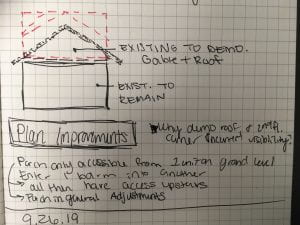 EXISTING TO DEMO.
Gable + Roof
EXIST. TO
REMAIN
Plan Improvments
Why demo roof &
corner current visibility?
Porch only accessible from 1 unit on ground level
Enter 1 bdrm into another
→ all then have access upstairs
→ Push in general Adjustments
9.26.19